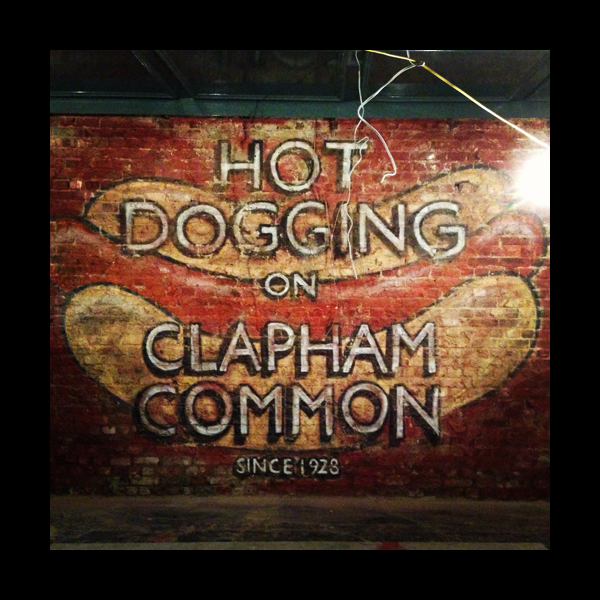 HOT
DOGGING
ON
CLAPHAM
COMMON
SINCE 1928